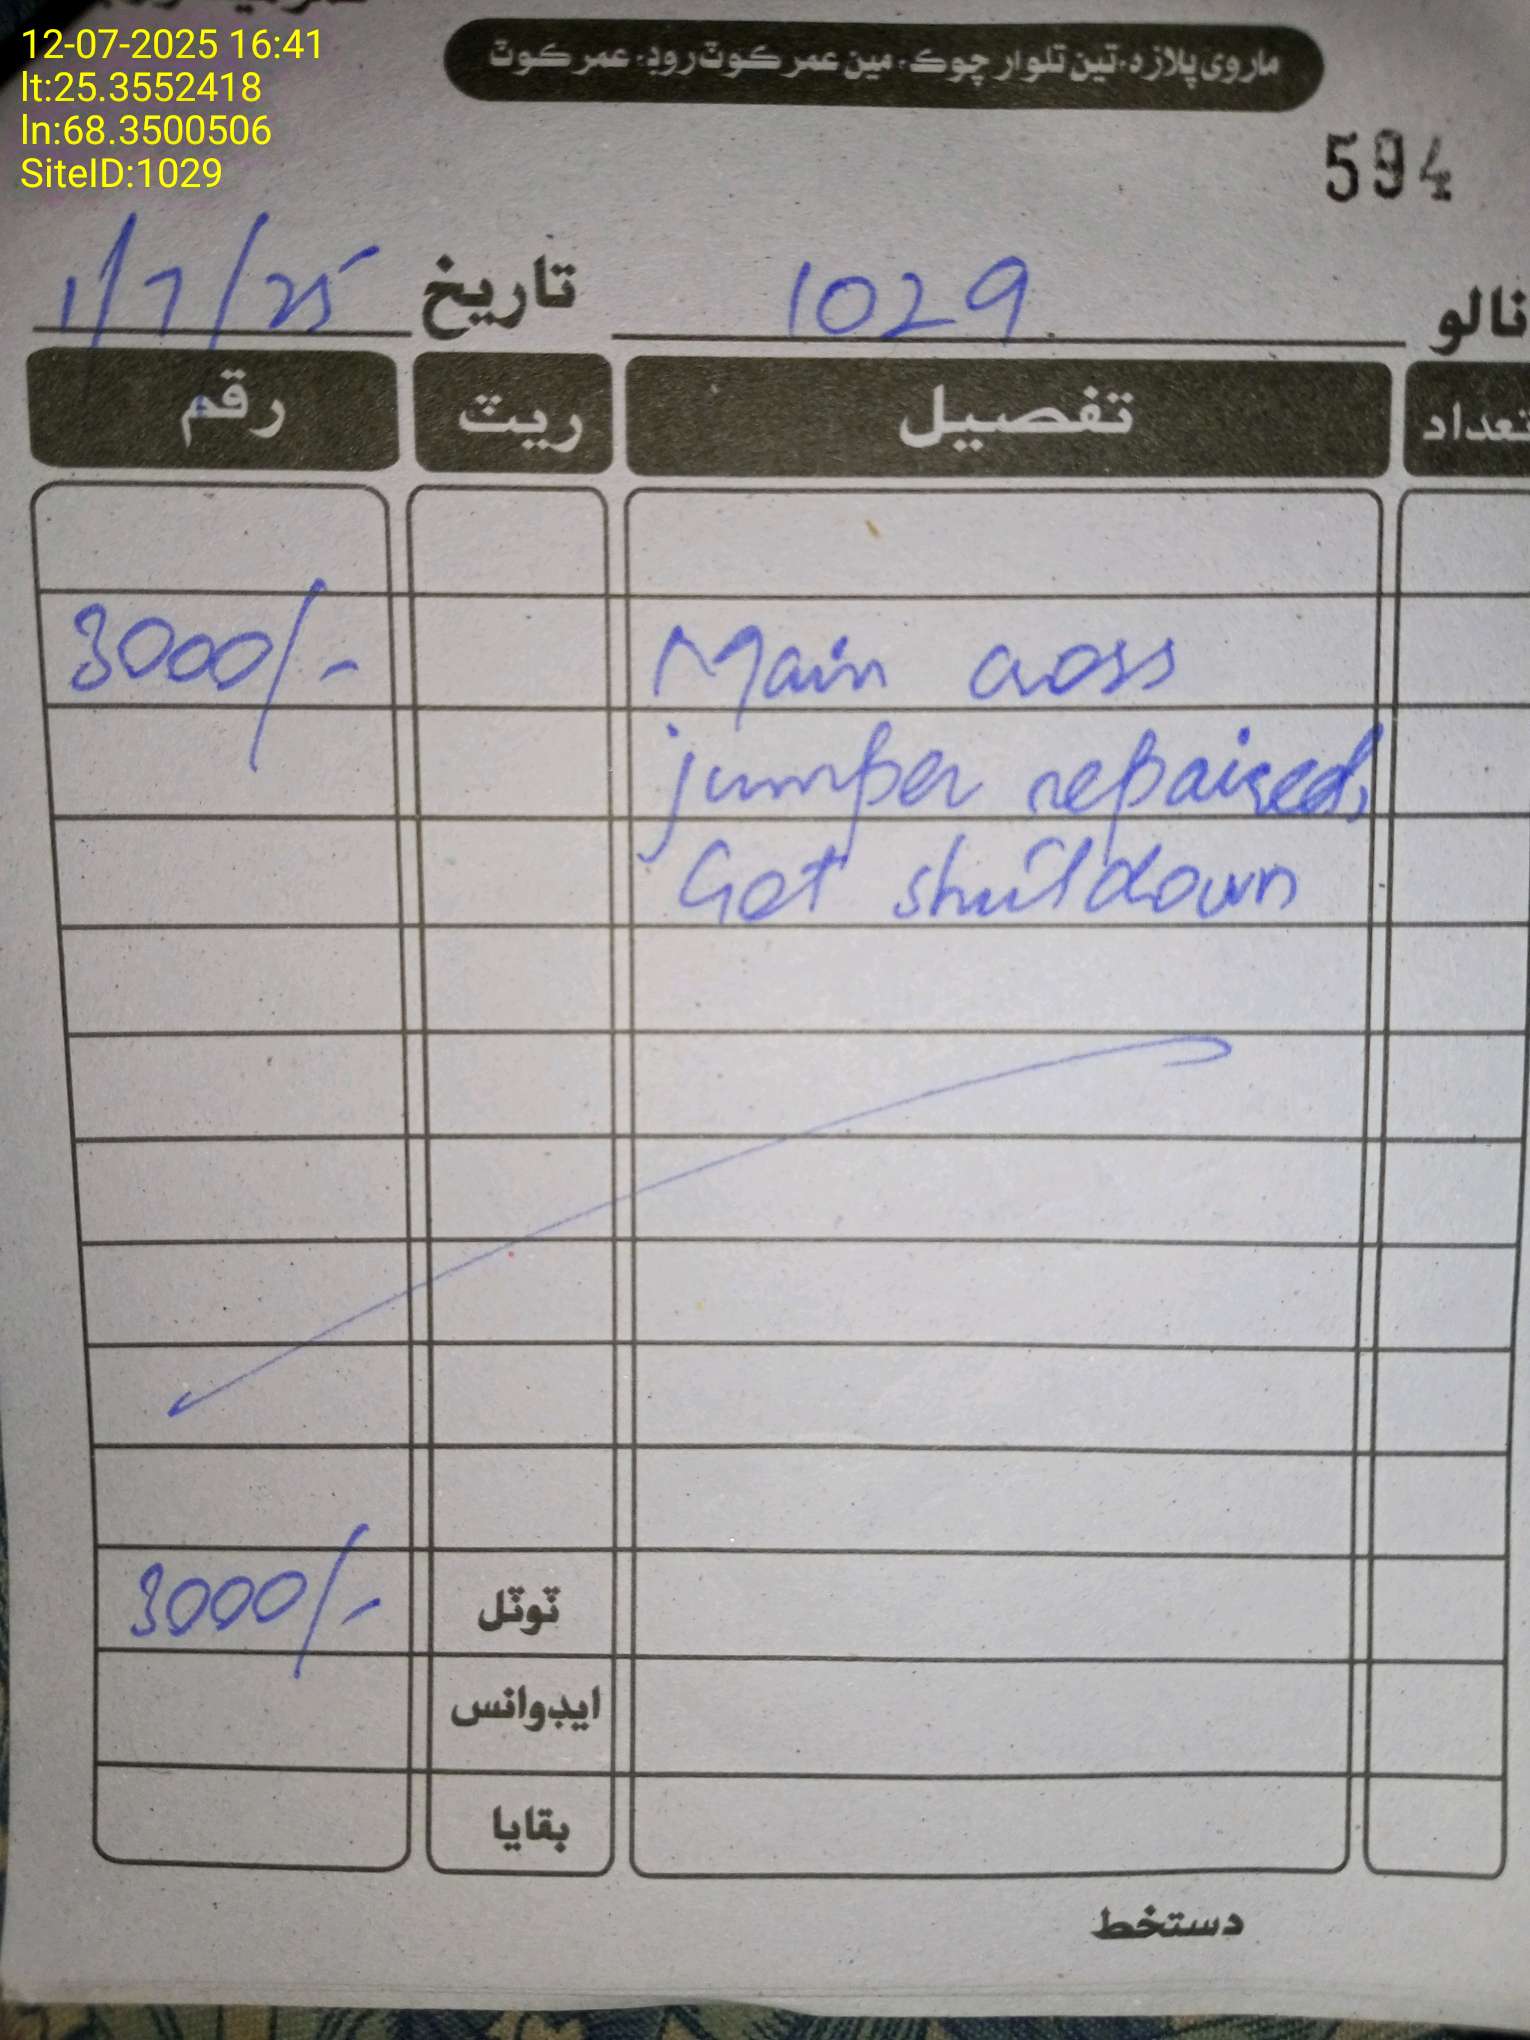 12-07-2025 16:41
lt:25.3552418
ln:68.3500506
SiteID:1029
ماروي پلازه، تين تلوار چوڪ، مين عمر ڪوٽ روڊ، عمر ڪوٽ
594
نالو 1029 تاريخ 1/7/25
تعداد تفصيل ريٽ رقم
Main cross 3000/-
jumper repaired,
Got shutdown
ٽوٽل 3000/-
ايڊوانس
بقايا
دستخط